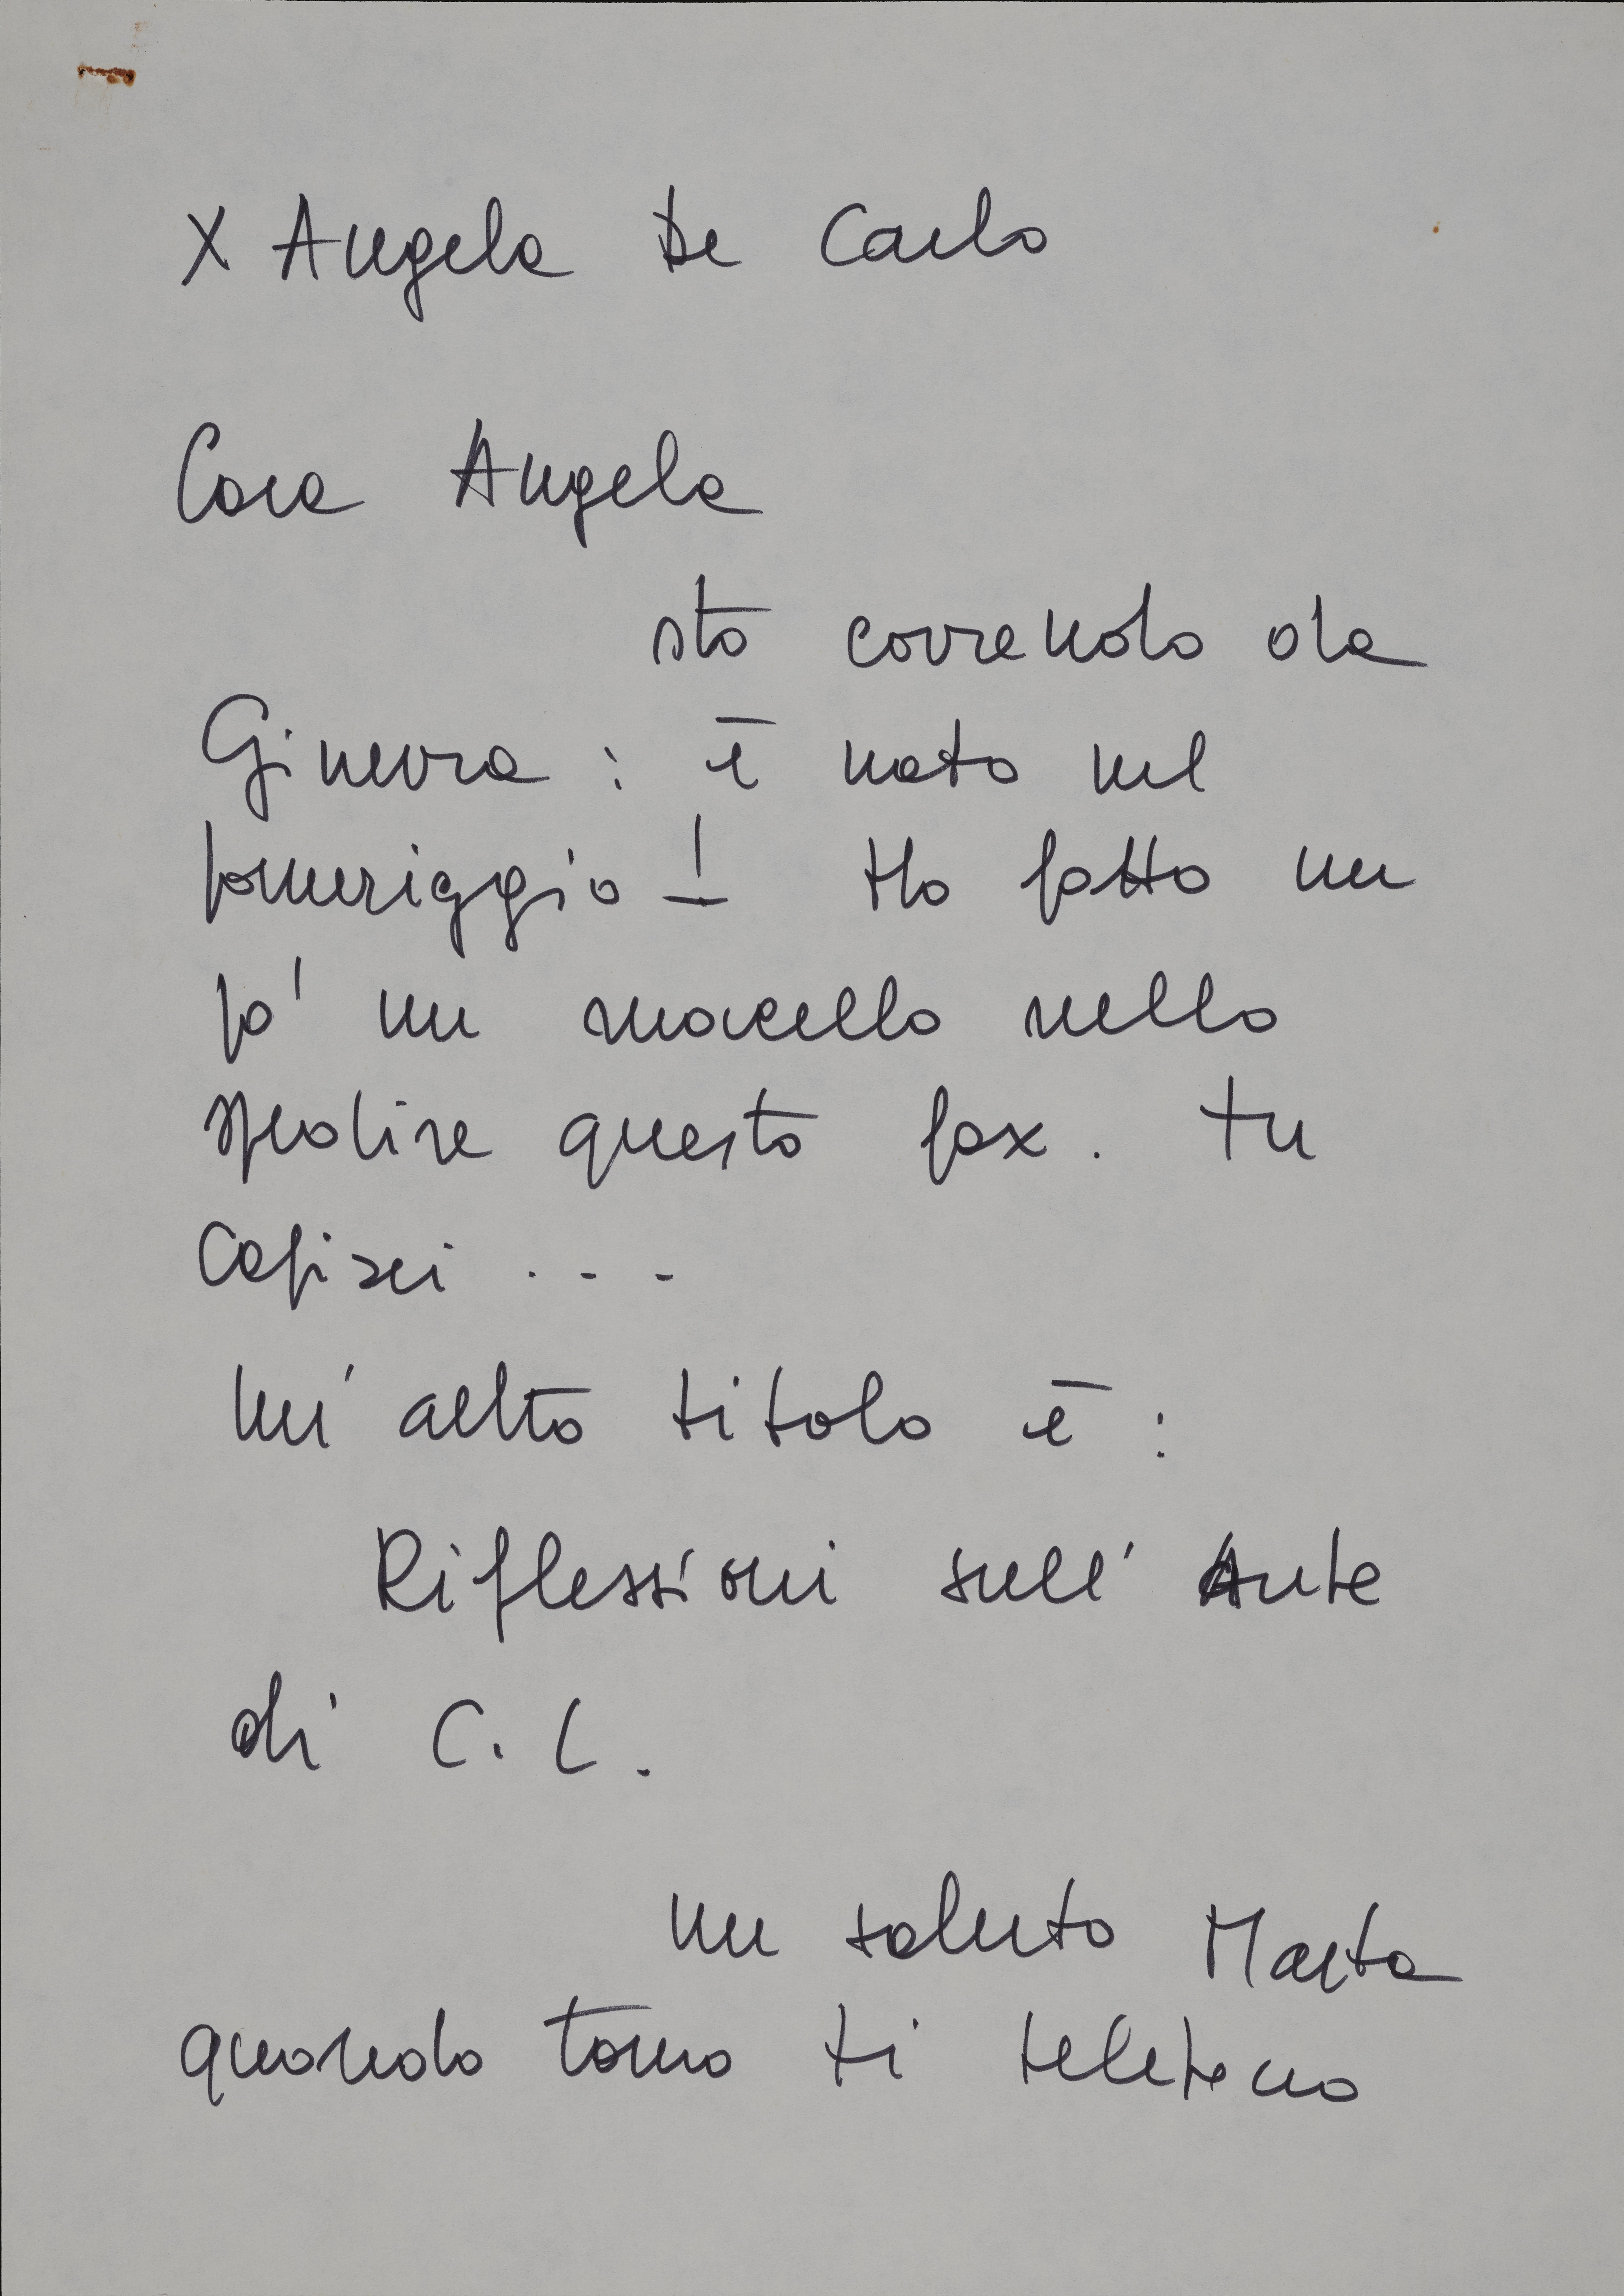 X Angela De Carlo
Cara Angela
sto correndo da
Ginevra : è nato nel
pomeriggio! Ho fatto un
po' un macello nello
spedire questo fax. Tu
capisci ...
Un altro titolo è :
Riflessioni sull' Arte
di C. L.
Un saluto Marta
quando torno ti telefono